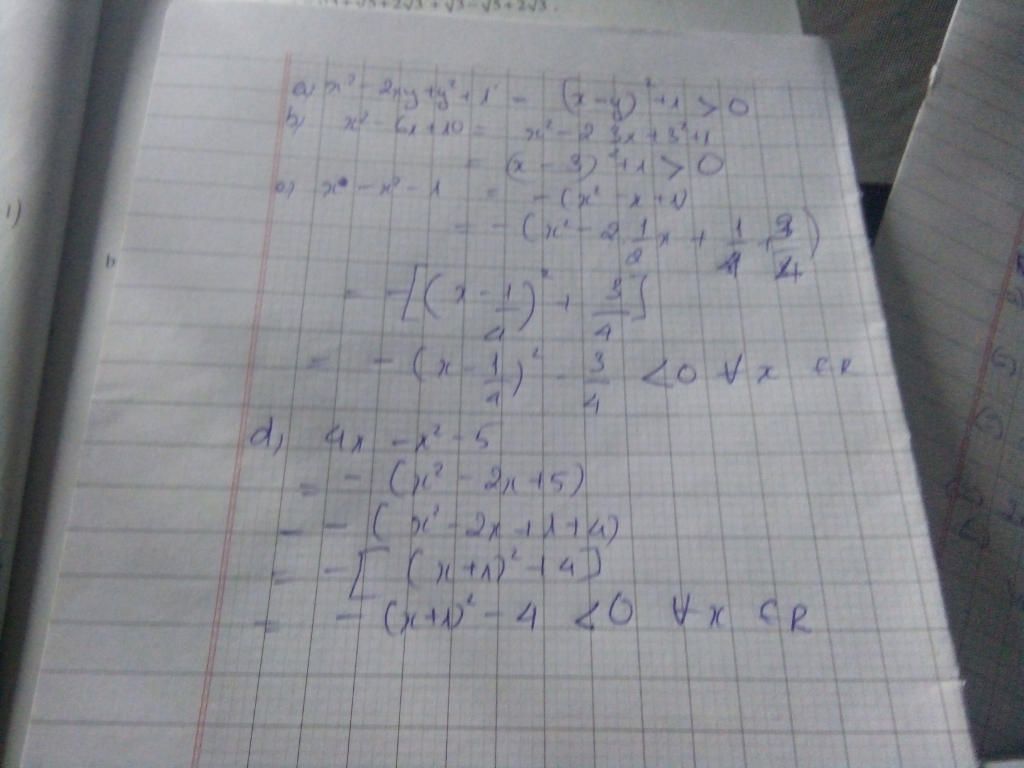 a) x² - 2xy + y² + 1 = (x - y)² + 1 > 0
b) x² - 6x + 10 = x² - 2 3x + 3² + 1
= (x - 3)² + 1 > 0
c) x - x² - 1 = - (x² - x + 1)
= - (x² - 2 1/2 x + 1/4 + 3/4)
= - [(x - 1/4)² + 3/4]
= - (x - 1/4)² - 3/4 < 0 ∀ x ∈ R
d) 4x - x² - 5
= - (x² - 2x + 5)
= - (x² - 2x + 1 + 4)
= - [(x + 1)² + 4]
= - (x + 1)² - 4 < 0 ∀ x ∈ R